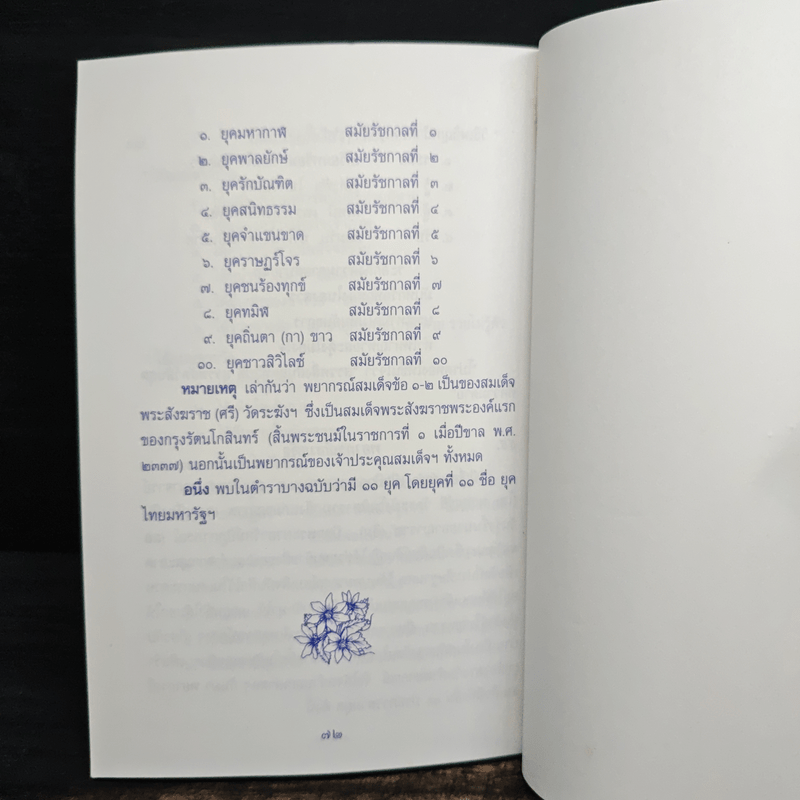 ๑. ยุคมหากาฬ สมัยรัชกาลที่ ๑
๒. ยุคพาลยักษ์ สมัยรัชกาลที่ ๒
๓. ยุครักบัณฑิต สมัยรัชกาลที่ ๓
๔. ยุคสนิทธรรม สมัยรัชกาลที่ ๔
๕. ยุคจำแขนขาด สมัยรัชกาลที่ ๕
๖. ยุคราษฎร์โจร สมัยรัชกาลที่ ๖
๗. ยุคชนร้องทุกข์ สมัยรัชกาลที่ ๗
๘. ยุคทมิฬ สมัยรัชกาลที่ ๘
๙. ยุคถิ่นตา (กา) ขาว สมัยรัชกาลที่ ๙
๑๐. ยุคชาวสิวิไลซ์ สมัยรัชกาลที่ ๑๐
หมายเหตุ เล่ากันว่า พยากรณ์สมเด็จข้อ ๑-๒ เป็นของสมเด็จ
พระสังฆราช (ศรี) วัดระฆังฯ ซึ่งเป็นสมเด็จพระสังฆราชพระองค์แรก
ของกรุงรัตนโกสินทร์ (สิ้นพระชนม์ในราชการที่ ๑ เมื่อปีขาล พ.ศ.
๒๓๓๗) นอกนั้นเป็นพยากรณ์ของเจ้าประคุณสมเด็จฯ ทั้งหมด
อนึ่ง พบในตำราบางฉบับว่ามี ๑๑ ยุค โดยยุคที่ ๑๑ ชื่อ ยุค
ไทยมหารัฐฯ
๗๒